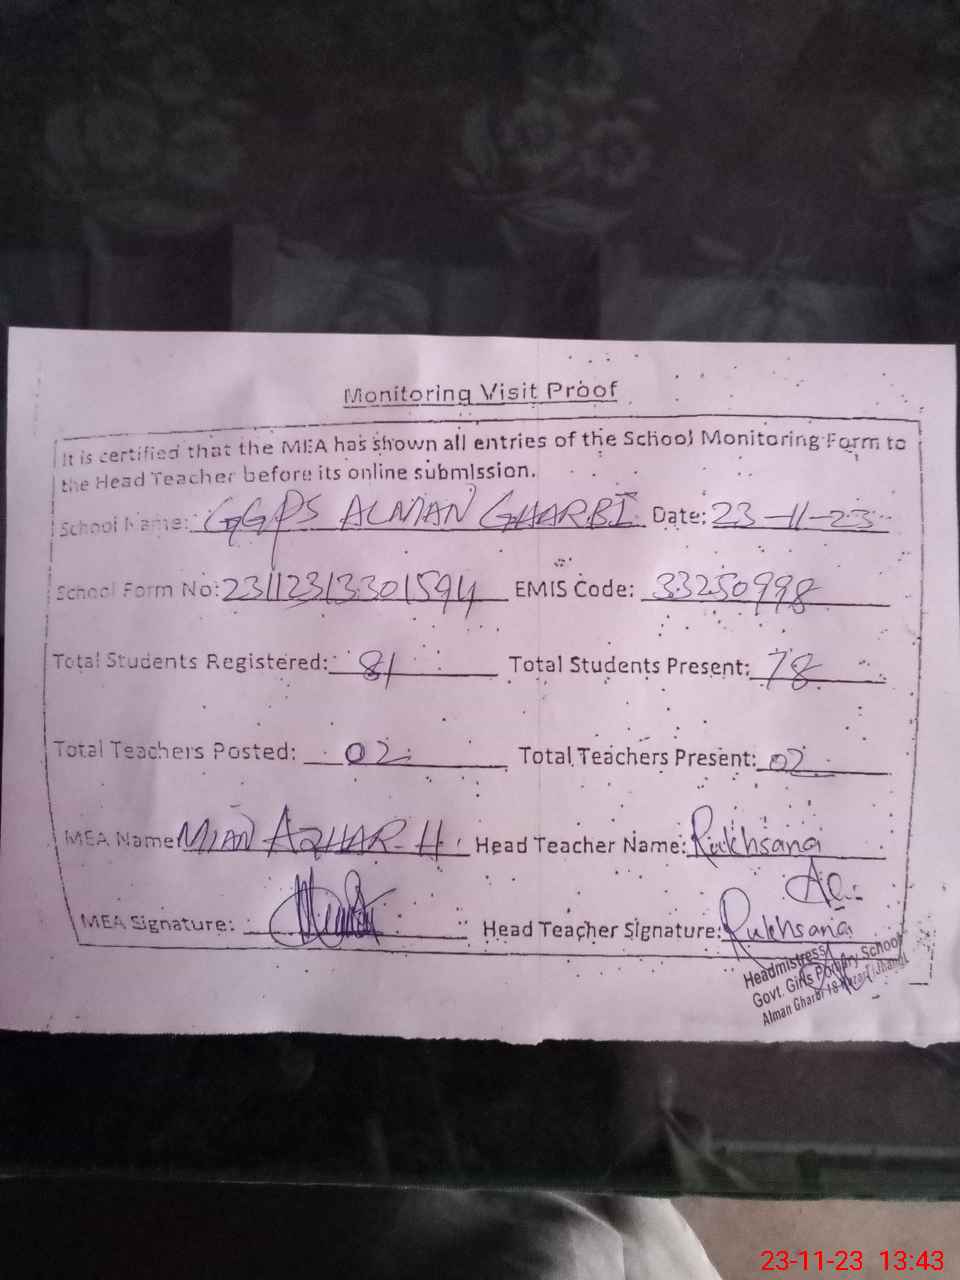 Monitoring Visit Proof
It is certified that the MEA has shown all entries of the School Monitoring Form to
the Head Teacher before its online submission.
School Name: GGPS ALMAN GHARBI Date: 23-11-23
School Form No: 231123133301594 EMIS Code: 33250998
Total Students Registered: 81 Total Students Present: 78
Total Teachers Posted: 02 Total Teachers Present: 02
MEA Name MIAN AZHAR-H Head Teacher Name: Rukhsana
MEA Signature: Head Teacher Signature: Rukhsana
Headmistress
Govt. Girls Primary School
Alman Gharbi 18-Hazari (Jhang)
23-11-23 13:43